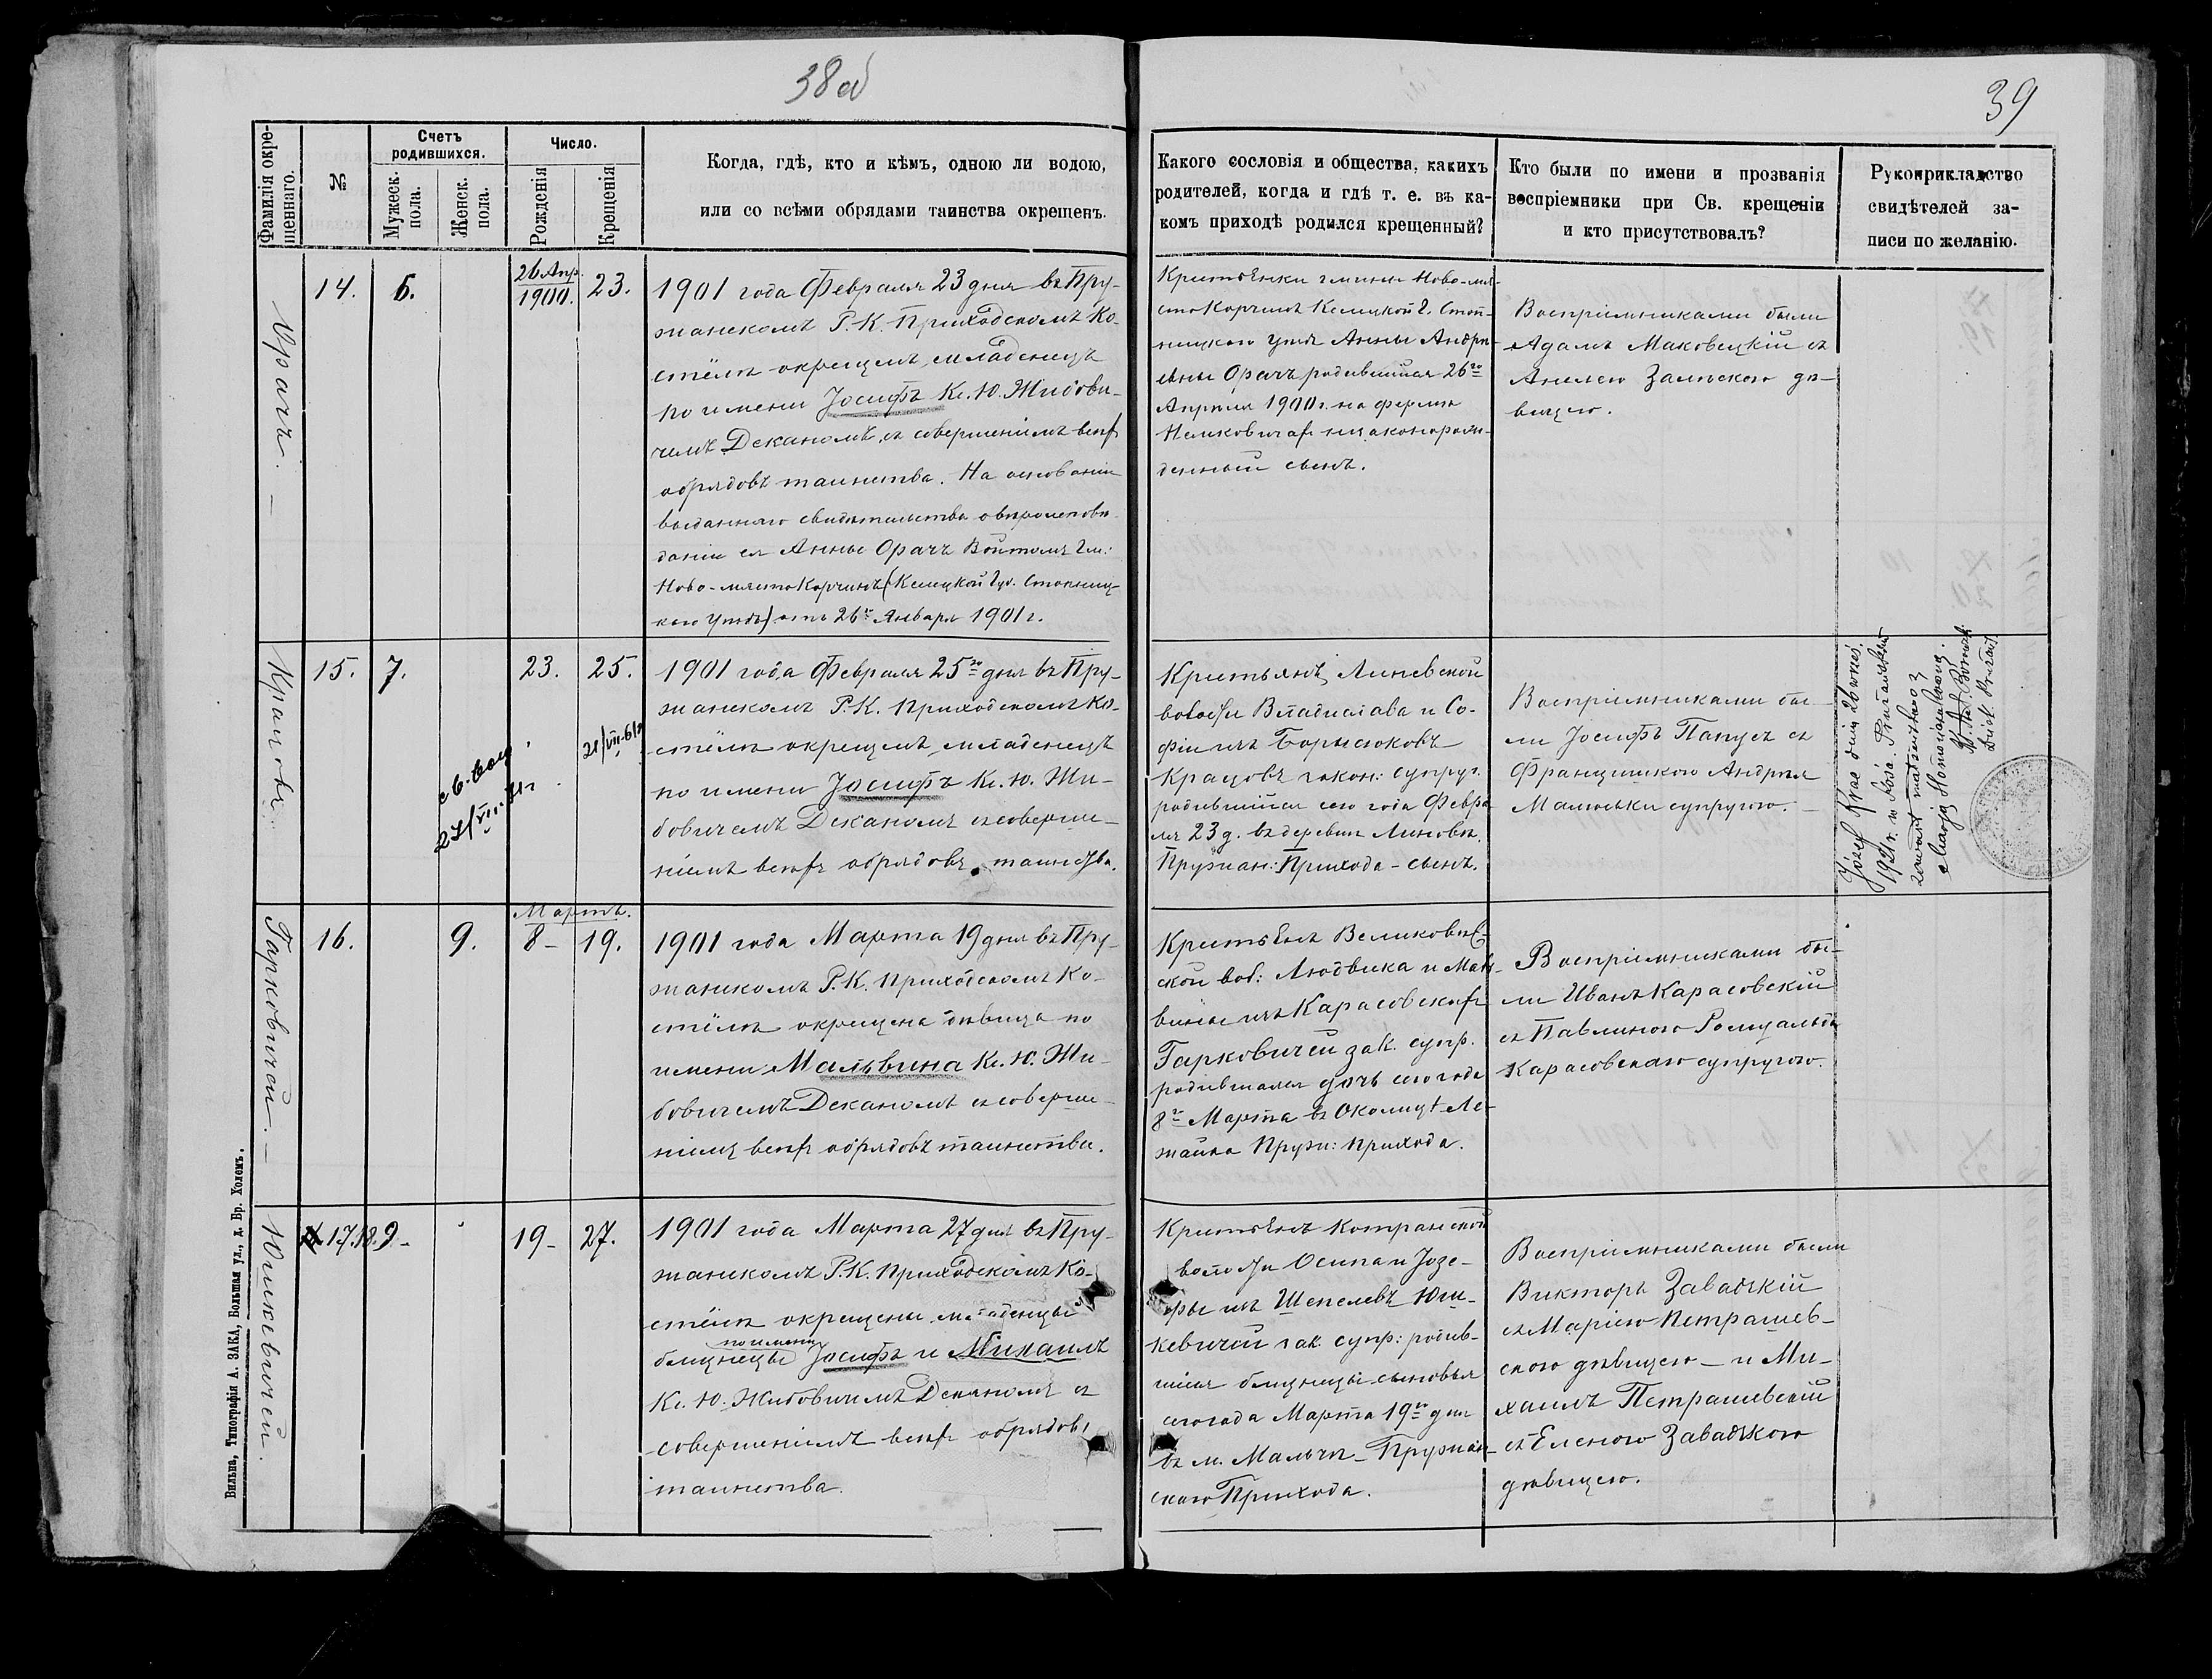 38 об
39
Фамилія окре-
щеннаго.
№
Счетъ
родившихся.
Мужеск.
пола.
Женск.
пола.
Число.
Рожденія
Крещенія
Когда, гдѣ, кто и кѣмъ, одною ли водою,
или со всѣми обрядами таинства окрещенъ.
Какого сословія и общества, какихъ
родителей, когда и гдѣ т. е. въ ка-
комъ приходѣ родился крещенный?
Кто были по имени и прозванія
воспріемники при Св. крещеніи
и кто присутствовалъ?
Рукоприкладство
свидѣтелей за-
писи по желанію.
Орачъ. —
14.
6.
26 Апр.
1900.
23.
1901 года Февраля 23 дня въ Пру-
жанскомъ Р.К. Приходскомъ Ко-
стёлѣ окрещенъ младенецъ
по имени Іосифъ Кс. Ю. Жидови-
чемъ Деканомъ съ совершеніемъ всѣхъ
обрядовъ таинства. На основаніи
выданнаго свидѣтельства о вѣроисповѣ-
даніи ея Анны Орачъ Войтомъ Гм.
Ново-мѣсто Корчинъ (Кѣлецкой Губ. Стопниц-
каго Уѣзда) отъ 26го Января 1901 г.
Крестьянки гмины Ново-мѣ-
сто Корчинъ Кѣлецкой Г. Стоп-
ницкаго уѣзда Анны Андре-
евны Орачъ родившійся 26го
Апрѣля 1900 г. на фермѣ
незаконорож-
денный сынъ.
Воспріемниками были
Адамъ Маковецкій съ
Анелею Залѣскою дѣ-
вицею.
Крацовъ.
15.
7.
23.
25.
21/VII-61г
св. выд
21/VII-61г
1901 года Февраля 25го дня въ Пру-
жанскомъ Р.К. Приходскомъ Ко-
стёлѣ окрещенъ младенецъ
по имени Іосифъ Кс. Ю. Жи-
довичемъ Деканомъ съ соверше-
ніемъ всѣхъ обрядовъ таинства.
Крестьянъ Линевской
волости Владислава и Со-
фіи изъ Борисюковъ
Крацовъ закон: супруг.
родившійся сего года Февра-
ля 23 д. въ деревнѣ Линовѣ
Пружан: Прихода - сынъ.
Воспріемниками бы-
ли Іосифъ Папусъ съ
Францишкою Андрея
Малюськи супругою. —
Józef Krac dnia 20
1921 r. w Kość. Prużańskim
zawarł małżeństwo z
Marją
Гарковичей. —
16.
9.
Мартъ.
8 -
19.
1901 года Марта 19 дня въ Пру-
жанскомъ Р.К. Приходскомъ Ко-
стёлѣ окрещена дѣвица по
имени Мальвина Кс. Ю. Жи-
довичемъ Деканомъ съ соверше-
ніемъ всѣхъ обрядовъ таинства.
Крестьянъ Великовес-
ской вол: Людвика и Маль-
вины изъ Карасовскихъ
Гарковичей зак. супр.
родившаяся дочь сего года
8го Марта въ Околицѣ Ле-
жайка Пруж: прихода.
Воспріемниками бы-
ли Иванъ Карасовскій
съ Павлиною Ромуальда
Карасовскаго супругою.
Юшкевичей.
17.18.
9 -
19 -
27.
1901 года Марта 27 дня въ Пру-
жанскомъ Р.К. Приходскомъ Ко-
стёлѣ окрещены младенцы
близнецы по имени Іосифъ и Михаилъ
Кс. Ю. Жидовичемъ Деканомъ съ
совершеніемъ всѣхъ обрядовъ
таинства.
Крестьянъ Котранской
волости Осипа и Іозе-
фы изъ Шепелевъ Юш-
кевичей зак. супр: родив-
шіеся близнецы сыновья
сего года Марта 19го дня
въ м. Мальчѣ - Пружан-
скаго Прихода.
Воспріемниками были
Викторъ Завадзкій
съ Маріею Петрашев-
скою дѣвицею — и Ми-
хаилъ Петрашевскій
съ Еленою Завадзкою
дѣвицею.
Вильна, Типографія А. ЗАКА, Большая ул., д. Бр. Холемъ.